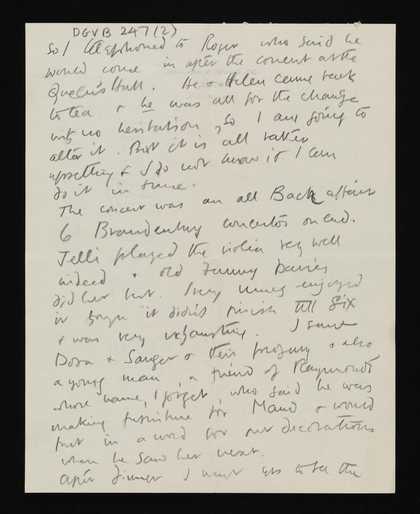 DGVB 247(2)
So I telephoned to Roger who said he
would come in after the concert at the
Queen's Hall. He & Helen came back
to tea & he was all for the change
with no hesitation, so I am going to
alter it. But it is all rather
upsetting & I do not know if I can
do it in time.
The concert was an all Back affair
6 Brandenburg concertos on end.
Jelli played the violin very well
indeed & old Fanny Davies
did her bit. I very much enjoyed
it though it didn't finish till six
& was very exhausting. I saw
Dora & Sanger & their progeny & also
a young man, a friend of Raymond's
whose name, I forget, who said he was
making furniture for Maud & would
put in a word for our decorations
when he saw her next.
After dinner I went to see the